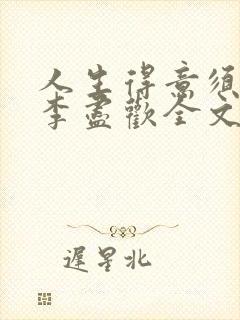 人生得意須
李盡歡全文
遲星北